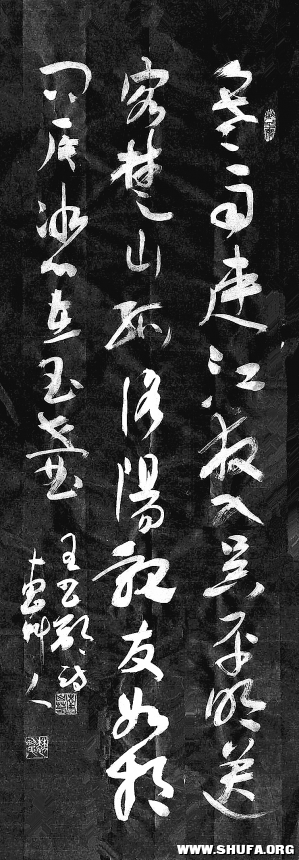 寒雨連江夜入吳平明送
客楚山孤洛陽親友如相
問一片冰心在玉壺
王昌齡詩
WWW.SHUFA.ORG